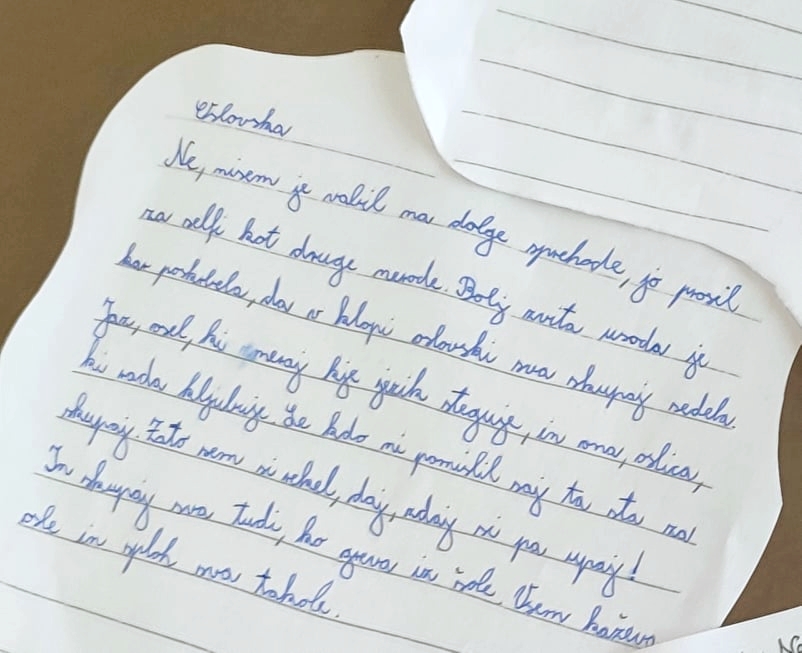 Oslovska
Ne, nisem je vabil na dolge sprehode, jo prosil
za selfi kot druge nerode. Bolj zvita usoda je
kar poskrbela, da v klopi oslovski sva skupaj sedela.
Jaz, osel, ki meraj kje jezik steguje, in ona, oslica,
ki rada kljubuje. Le kdo ni pomislil saj ta sta za
skupaj. Zato sem si rekel, daj, zdaj si pa upaj!
In skupaj sva tudi, ko greva iz šole. Vsem kaževa
osle in sploh sva takole.